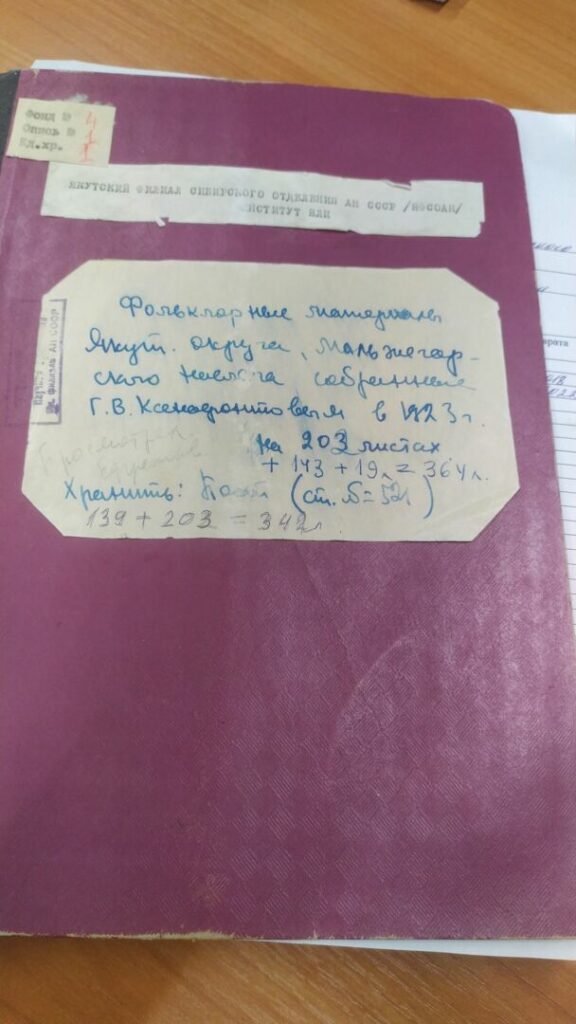 Фонд № 4
Опись № 1
Ед.хр. 1
ЯКУТСКИЙ ФИЛИАЛ СИБИРСКОГО ОТДЕЛЕНИЯ АН СССР /ЯФСОАН/
ИНСТИТУТ ЯЛИ
Фольклорные материалы
Якут. округа, Мальжегар-
ского наслега собранные
Г.В.Ксенофонтовым в 1923 г.
на 203 листах
+ 143 + 19л = 364л.
Хранить: Пост (ст. б = 521)
139 + 203 = 342л
филиал АН СССР